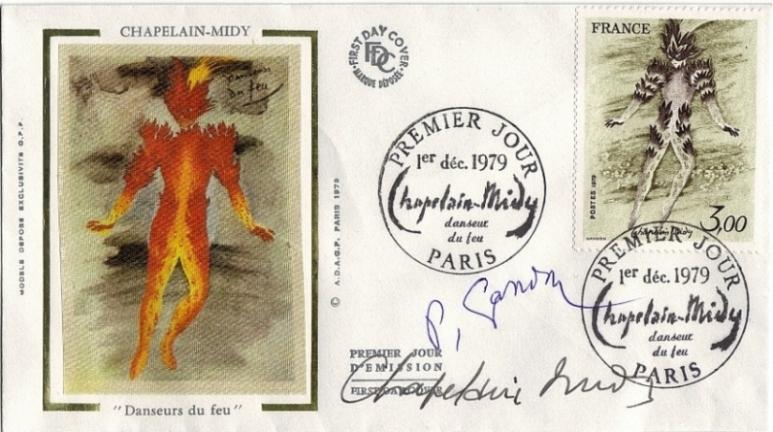 CHAPELAIN-MIDY
danseur
du feu
MODELE DEPOSE EXCLUSIVITE G.P.F
© A.D.A.G.P. PARIS 1979
"Danseurs du feu"
FIRST DAY COVER
FDC
MARQUE DÉPOSÉE
PREMIER JOUR
1er déc. 1979
Chapelain-Midy
danseur
du feu
PARIS
FRANCE
POSTES 1979
GANDON
3,00
Chapelain Midy
PREMIER JOUR
1er déc. 1979
Chapelain-Midy
danseur
du feu
PARIS
P. Gandon
PREMIER JOUR
D'EMISSION
FIRST DAY COVER
Chapelain Midy